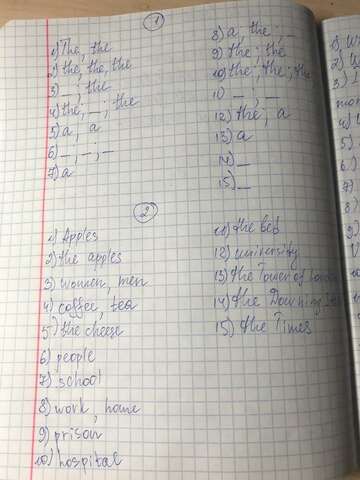 1
1) The, the
2) the, the, the
3) _ ; the
4) the, _ ; the
5) a, a
6) _ , _ ; _
7) a
8) a, the ;
9) the ; the
10) the ; the ; the
10 _ ; _
12) the ; a
13) a
14) _
15) _
2
1) Apples
2) the apples
3) women, men
4) coffee, tea
5) the cheese
6) people
7) school
8) work, home
9) prison
10) hospital
11) the bed
12) university
13) the Tower of London
14) the Downing
15) the Times